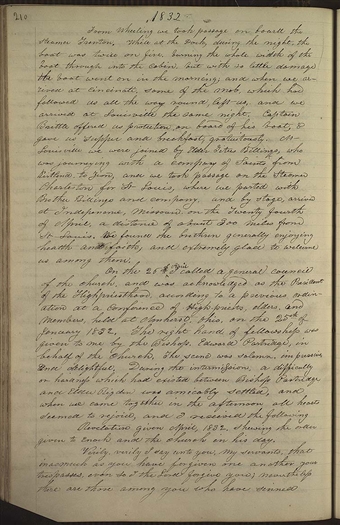 210
1832
From Wheeling we took passage on board the
Steamer Trenton. While at the Dock, during the night, the
boat was twice on fire, burning the whole width of the
boat through into the cabin, but with so little damage
the boat went on in the morning; and when we ar-
rived at Cincinnati, some of the mob, which had
followed us all the way round, left us, and we
arrived at Louisville the same night. Captain
Brittle offered us protection on board of his boat, &
gave us supper and breakfast gratuitously. At
Louisville we were joined by Elder Titus Billings, who
was journeying with a company of Saints from
Kirtland to Zion, and we took passage on the Steamer
Charleston for St Louis, where we parted with
Brother Billings and company, and by stage, arrived
at Independence, Missouri, on the Twenty fourth
of April, a distance of about 300 miles from
St. Louis. We found the brethren generally enjoying
health and faith, and extremely glad to welcome
us among them.
On the 26th I called a general council
of the church, and was acknowledged as the President
of the High priesthood, according to a previous ordin-
ation at a Conference of High priests, elders, and
Members, held at Amherst, Ohio, on the 25th of
January 1832. The right hand of fellowship was
given to me by the Bishop, Edward Partridge, in
behalf of the Church. The scene was solemn, impressive
and delightful. During the intermission, a difficulty
or hardness which had existed between Bishop Partridge
and Elder Rigdon, was amicably settled, and
when we came together in the afternoon all hearts
seemed to rejoice, and I received the following
Revelation given April, 1832, Shewing the order
given to Enoch and the church in his day.
Verily, verily I say unto you, My servants, that
inasmuch as you have forgiven one another your
trespasses, even so I the Lord forgive you; nevertheless
there are those among you who have sinned